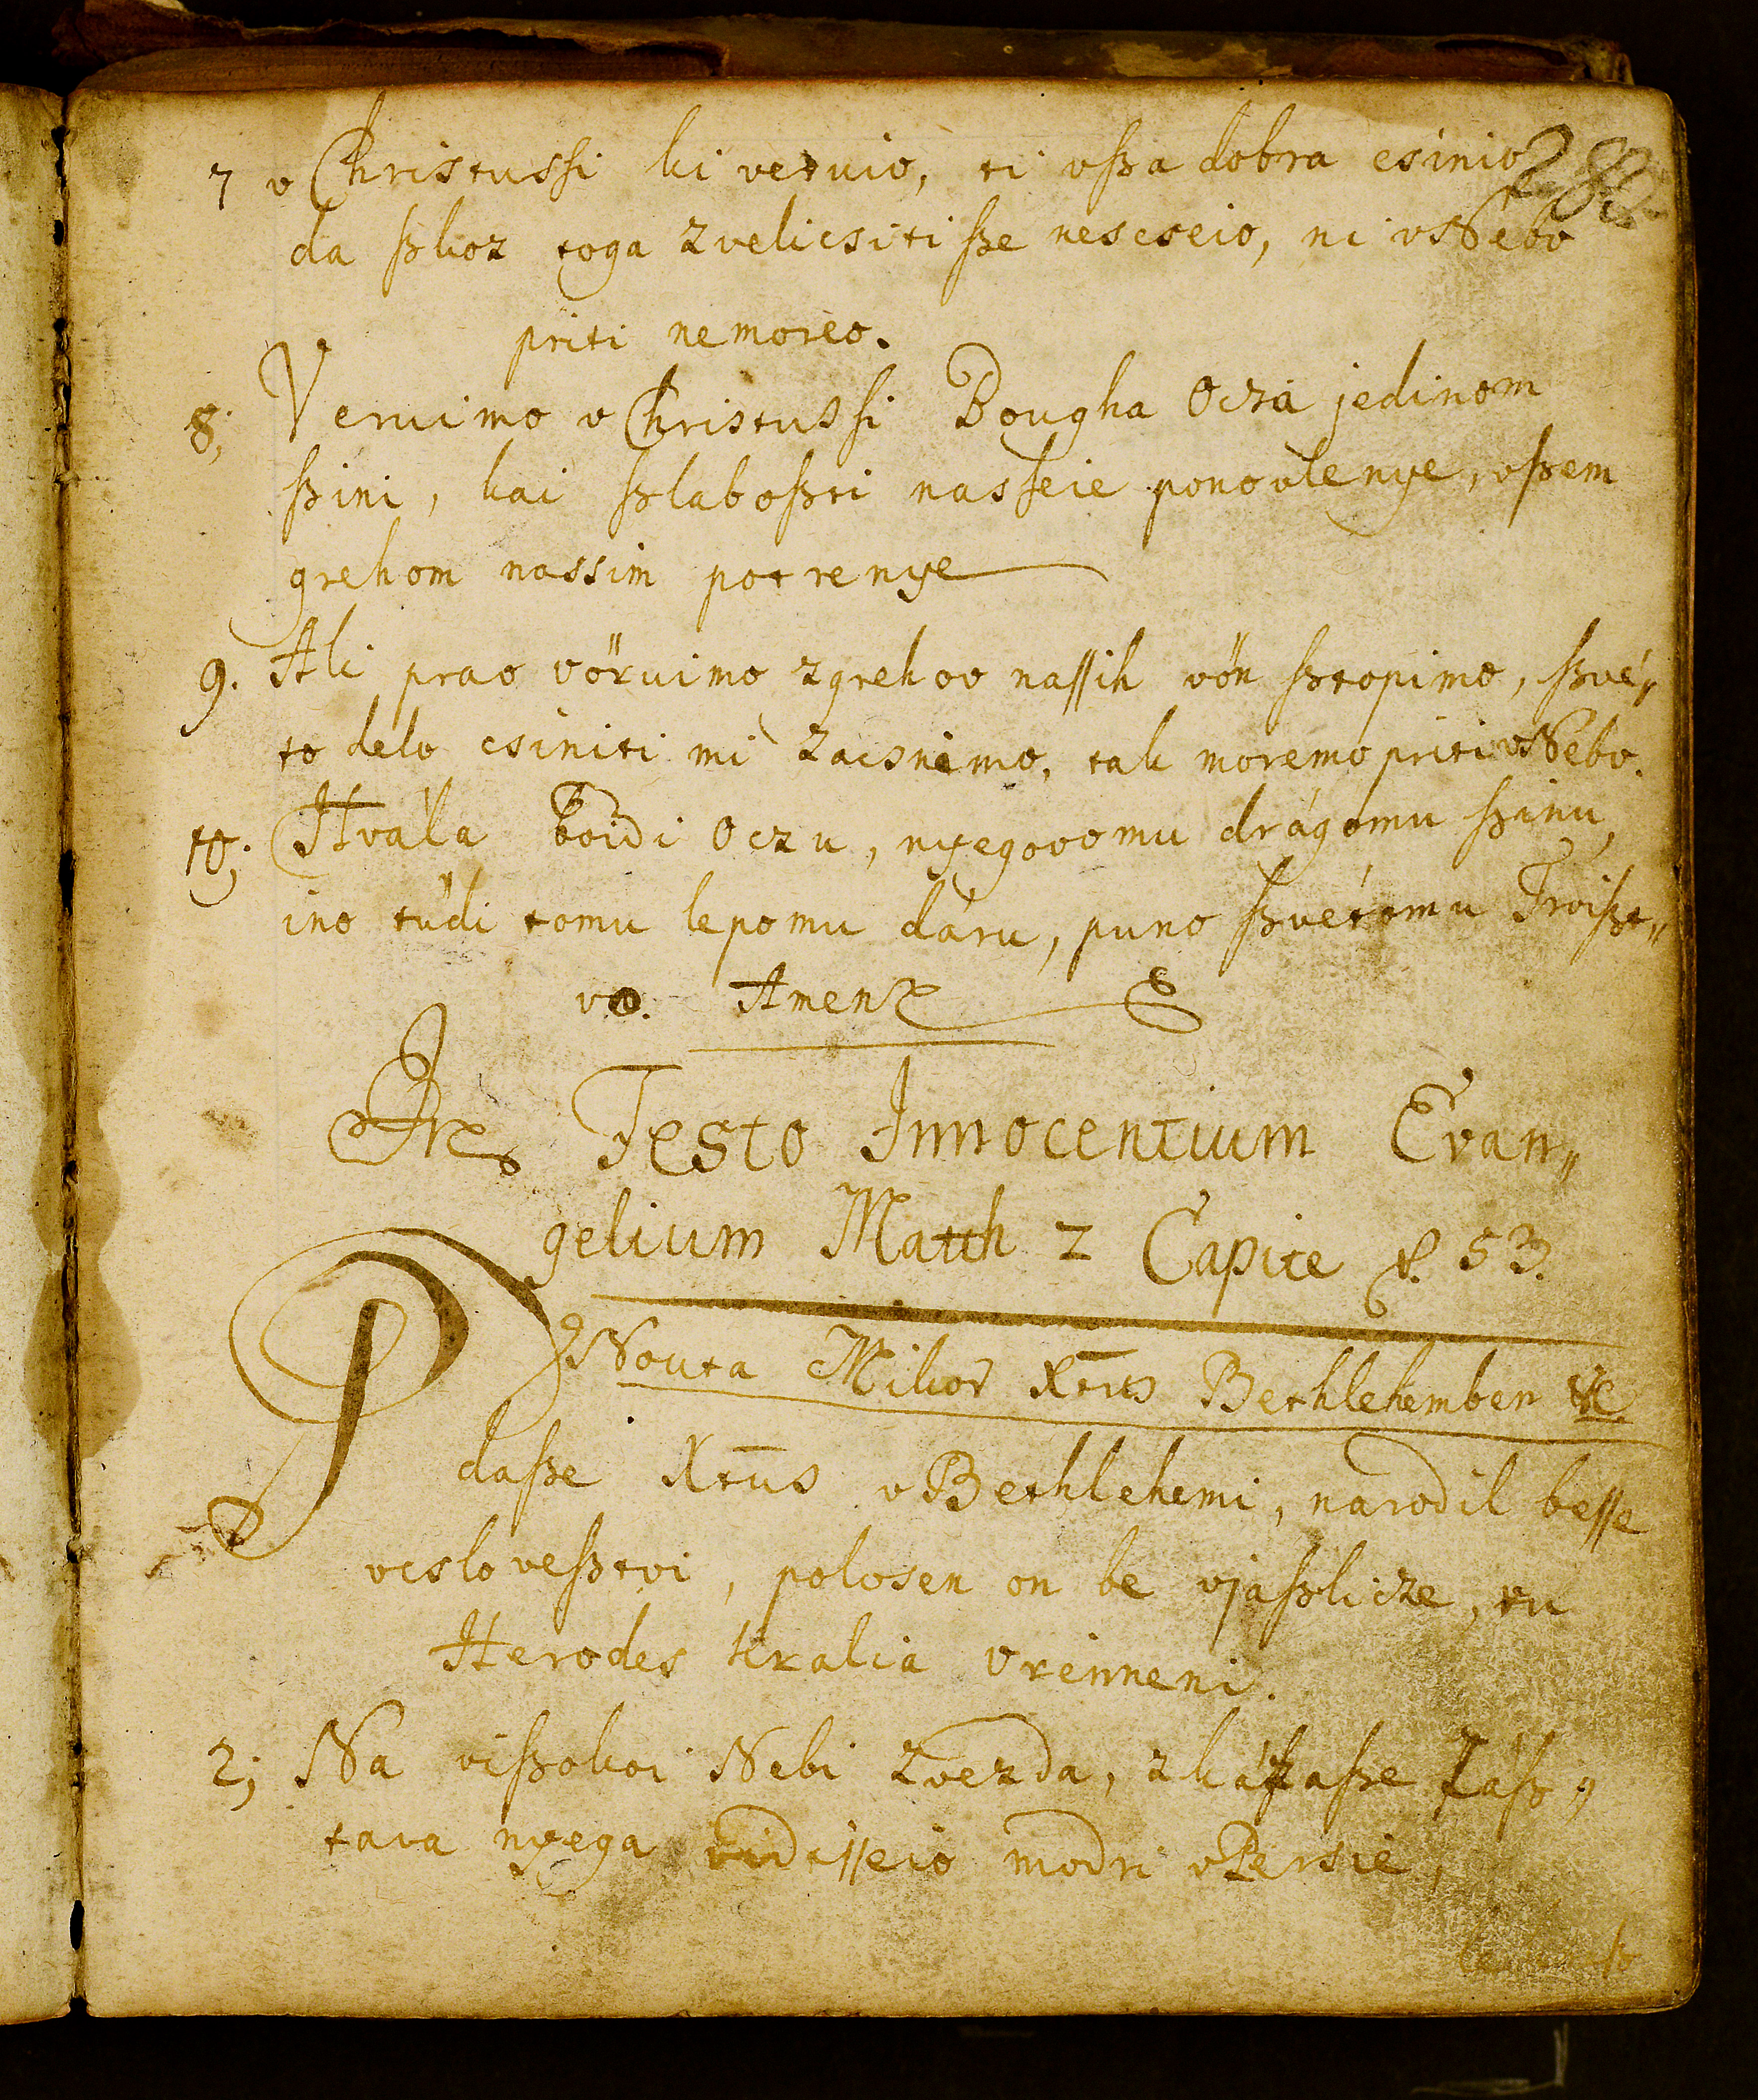 7 v Christussi ki vervio, ti vſzа dobra csinio
da ſzkoz toga zvelicsiti ſze nescseio, ni vNebo
priti nemoreo.
8; Veruimo v Christussi Bougha Oczá jedinom
ſzini, kai ſzlaboſzti nasſeie ponovlenye, vſzem
grehom nassim potrenye
9. Ali prao vöruimo zgrehov naſſih vön ſztopimo, ſzvé„
to delo csiniti mi zacsnimo, tak moremo priti vNebo.
10; Hvála boidi Oczu, nyegovomu drágomu ſzinu,
ino tüdi tomu lepomu dáru, puno ſzvétomu Troiſzt„
vo. Amen
In Festo Innocentium Evan„
gelium Matth 2 Capite f. 53.
Nouta Mikor Xtus Bethlehemben
P daſze Xtus vBethlehemi, narodil beſſe
vcsloveſztvi, polosen on be vjaſzlicze, vu
Herodes kralia vreimeni.
2; Na viſzokoi Nebi zvezda,
tara nyega vidiſſeio modri vPersie,